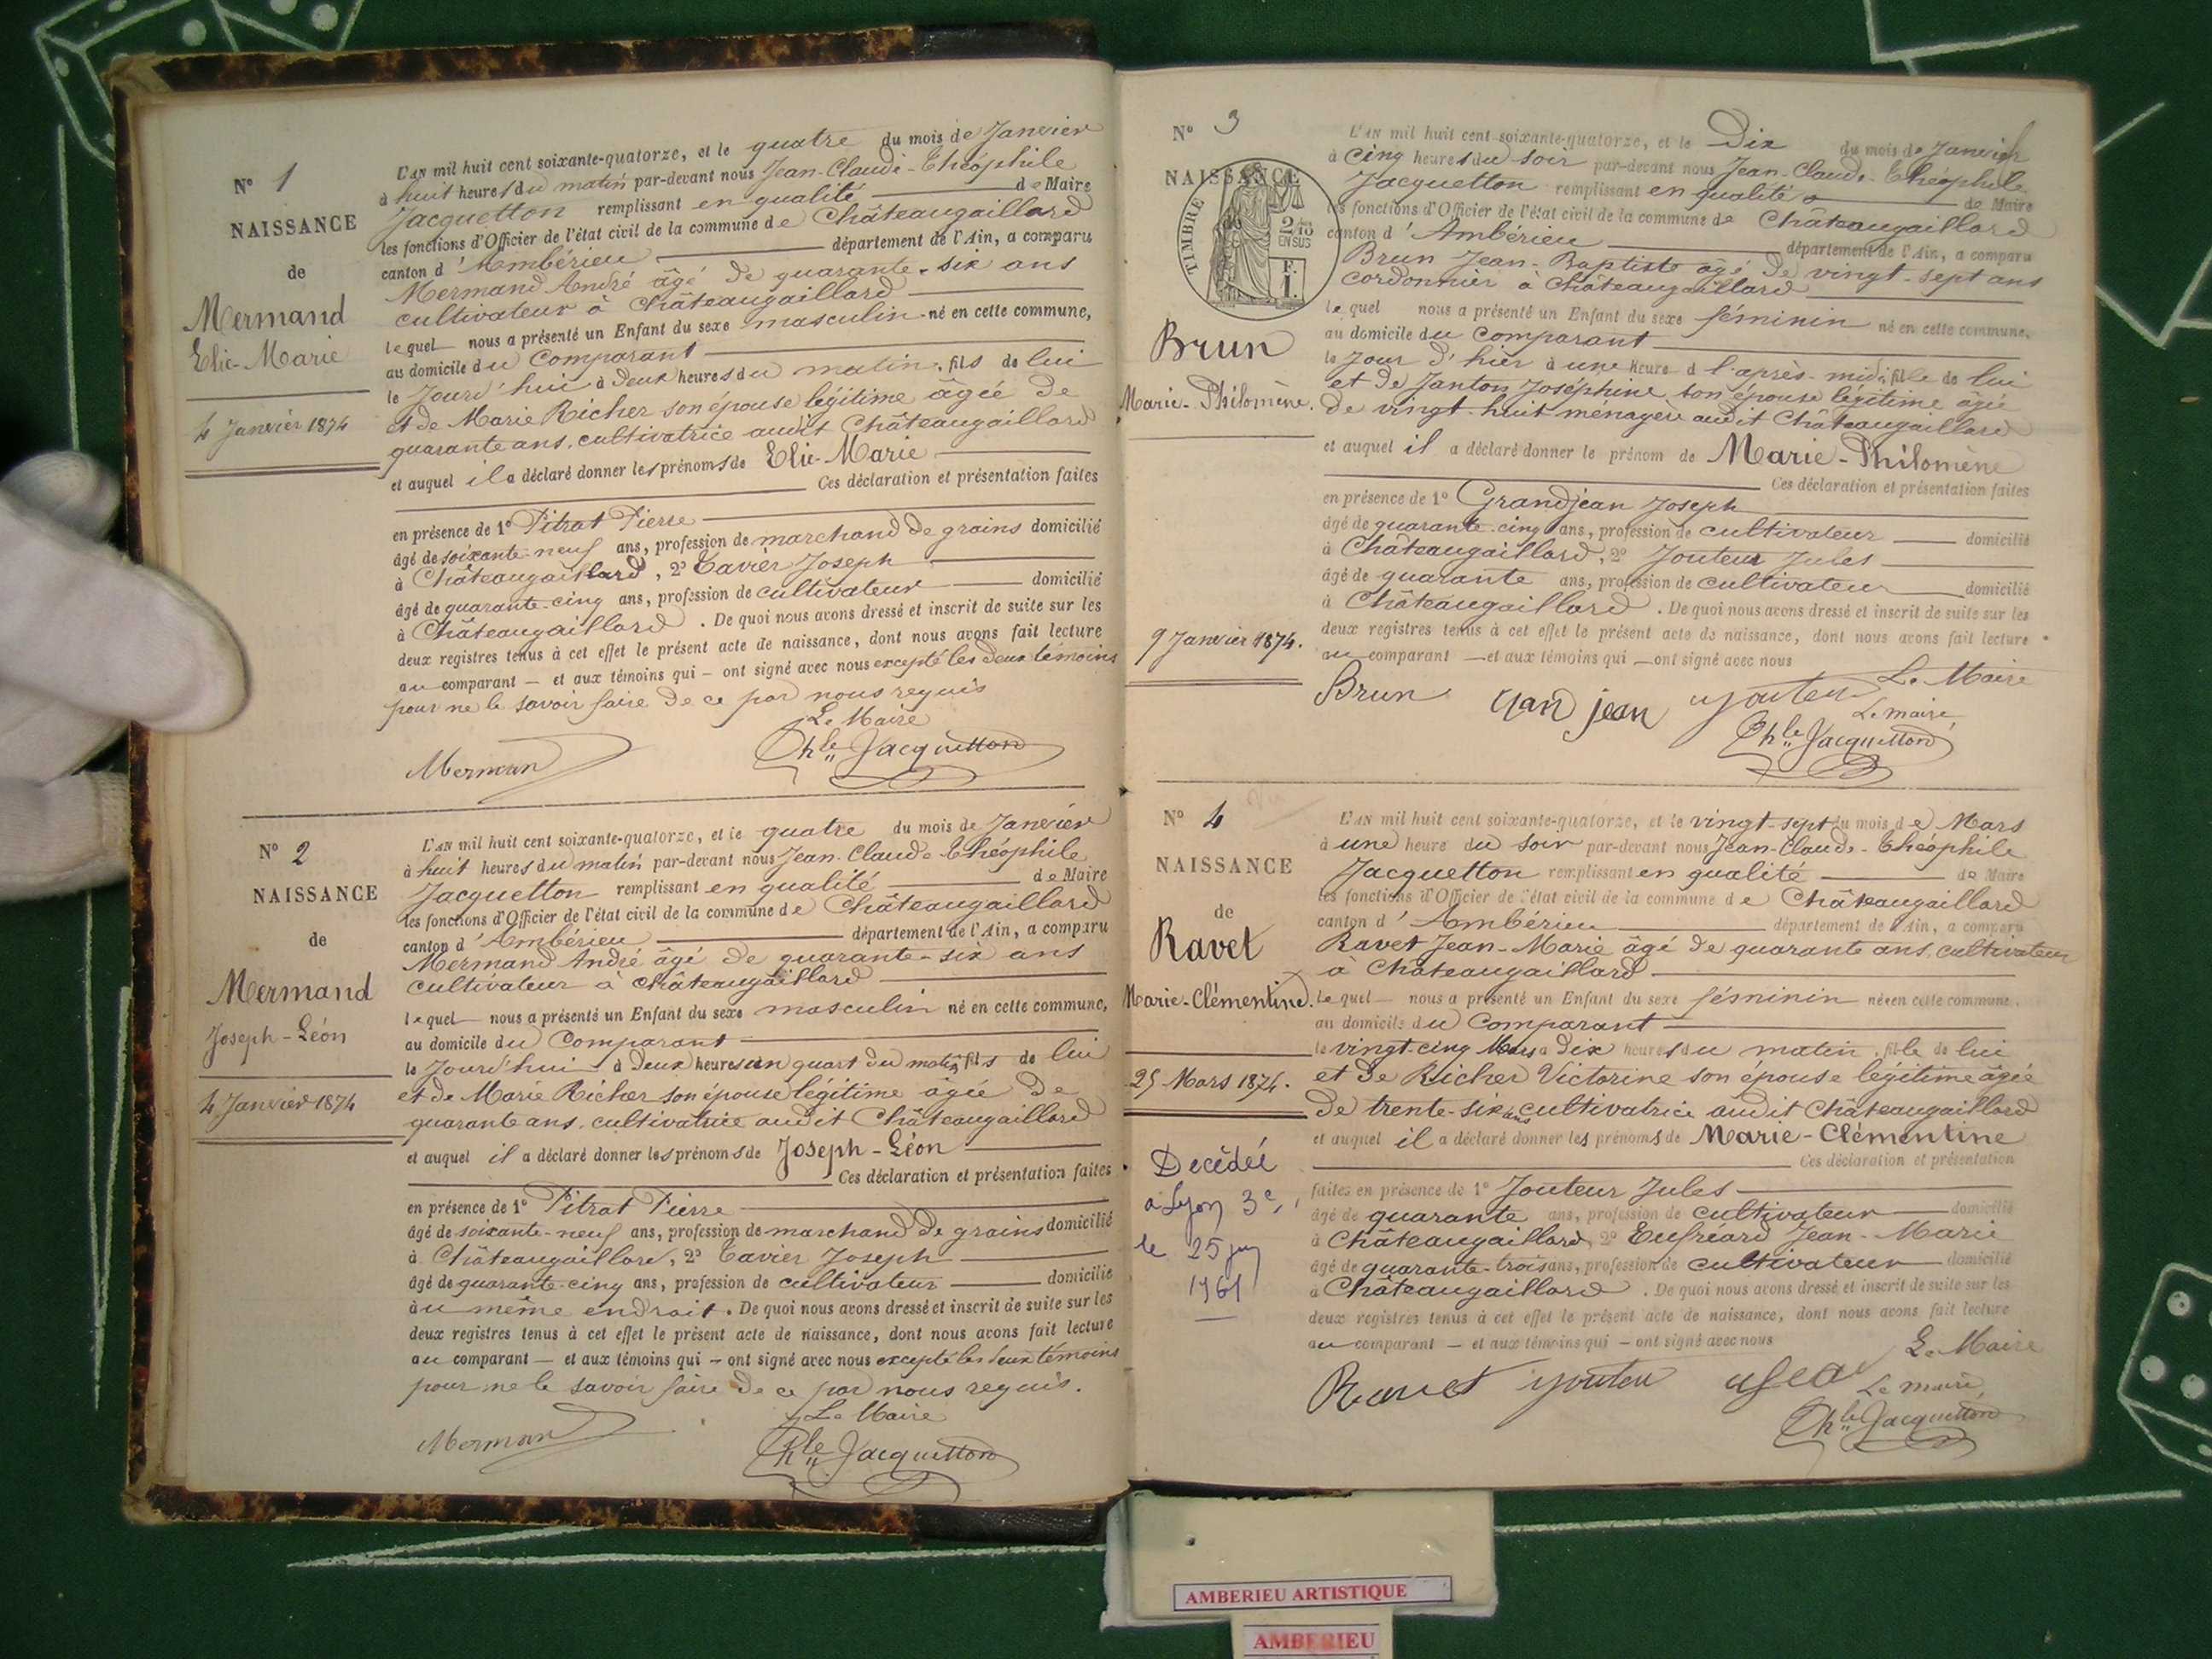 N° 1
NAISSANCE
de
Mermand
Elie-Marie
4 Janvier 1874
L'AN mil huit cent soixante-quatorze, et le quatre du mois de Janvier
à huit heures du matin par-devant nous Jean-Claude-Théophile
Jacquetton remplissant en qualité de Maire
les fonctions d'Officier de l'état civil de la commune de Châteaugaillard
canton d'Ambérieu département de l'Ain, a comparu
Mermand André âgé de quarante-six ans
cultivateur à Châteaugaillard
lequel nous a présenté un Enfant du sexe masculin né en cette commune,
au domicile du Comparant
le Jourd'hui à deux heures du matin, fils de lui
et de Marie Richer son épouse légitime âgée de
quarante ans, cultivatrice audit Châteaugaillard
et auquel il a déclaré donner les prénoms de Elie-Marie
Ces déclaration et présentation faites
en présence de 1° Pitrat Pierre
âgé de soixante-neuf ans, profession de marchand de grains domicilié
à Châteaugaillard, 2° Tavier Joseph
âgé de quarante-cinq ans, profession de cultivateur domicilié
à Châteaugaillard. De quoi nous avons dressé et inscrit de suite sur les
deux registres tenus à cet effet le présent acte de naissance, dont nous avons fait lecture
au comparant — et aux témoins qui — ont signé avec nous excepté les deux témoins
pour ne le savoir faire de ce par nous requis
Le Maire
Mermand Ph^le Jacquetton
N° 2
NAISSANCE
de
Mermand
Joseph-Léon
4 Janvier 1874
L'AN mil huit cent soixante-quatorze, et le quatre du mois de Janvier
à huit heures du matin par-devant nous Jean-Claude-Théophile
Jacquetton remplissant en qualité de Maire
les fonctions d'Officier de l'état civil de la commune de Châteaugaillard
canton d'Ambérieu département de l'Ain, a comparu
Mermand André âgé de quarante-six ans
cultivateur à Châteaugaillard
lequel nous a présenté un Enfant du sexe masculin né en cette commune,
au domicile du Comparant
le Jourd'hui à deux heures un quart du matin, fils de lui
et de Marie Richer son épouse légitime âgée de
quarante ans, cultivatrice audit Châteaugaillard
et auquel il a déclaré donner les prénoms de Joseph-Léon
Ces déclaration et présentation faites
en présence de 1° Pitrat Pierre
âgé de soixante-neuf ans, profession de marchand de grains domicilié
à Châteaugaillard, 2° Tavier Joseph
âgé de quarante-cinq ans, profession de cultivateur domicilié
au même endroit. De quoi nous avons dressé et inscrit de suite sur les
deux registres tenus à cet effet le présent acte de naissance, dont nous avons fait lecture
au comparant — et aux témoins qui — ont signé avec nous excepté les deux témoins
pour ne le savoir faire de ce par nous requis.
Le Maire
Mermand Ph^le Jacquetton
N° 3
NAISSANCE
TIMBRE
2/10
EN SUS
F.
1.
Brun
Marie-Philomène.
9 Janvier 1874.
L'AN mil huit cent soixante-quatorze, et le Dix du mois de Janvier
à cinq heures du soir par-devant nous Jean-Claude-Théophile
Jacquetton remplissant en qualité de Maire
les fonctions d'Officier de l'état civil de la commune de Châteaugaillard
canton d'Ambérieu département de l'Ain, a comparu
Brun Jean-Baptiste âgé de vingt-sept ans
cordonnier à Châteaugaillard
lequel nous a présenté un Enfant du sexe féminin né en cette commune,
au domicile du comparant
le Jour d'hier à une heure d l'après-midi, fille de lui
et de Janton Joséphine son épouse légitime âgée
de vingt-huit ménagère audit Châteaugaillard
et auquel il a déclaré donner le prénom de Marie-Philomène
Ces déclaration et présentation faites
en présence de 1° Grandjean Joseph
âgé de quarante-cinq ans, profession de cultivateur domicilié
à Châteaugaillard, 2° Jouteur Jules
âgé de quarante ans, profession de cultivateur domicilié
à Châteaugaillard. De quoi nous avons dressé et inscrit de suite sur les
deux registres tenus à cet effet le présent acte de naissance, dont nous avons fait lecture
au comparant — et aux témoins qui — ont signé avec nous
Le Maire
Brun Gran jean Jouteur Le maire,
Ph^le Jacquetton
N° 4
NAISSANCE
de
Ravet
Marie-Clémentine.
25 Mars 1874.
Decédée
à Lyon 3e,
le 25
1961
L'AN mil huit cent soixante-quatorze, et le vingt-sept du mois de Mars
à une heure du soir par-devant nous Jean-Claude-Théophile
Jacquetton remplissant en qualité de Maire
les fonctions d'Officier de l'état civil de la commune de Châteaugaillard
canton d'Ambérieu département de l'Ain, a comparu
Ravet Jean-Marie âgé de quarante ans, cultivateur
à Châteaugaillard
lequel nous a présenté un Enfant du sexe féminin né en cette commune,
au domicile du Comparant
le vingt-cinq Mars à Dix heures du matin, fille de lui
et de Richer Victorine son épouse légitime âgée
de trente-six ans cultivatrice audit Châteaugaillard
et auquel il a déclaré donner les prénoms de Marie-Clémentine
Ces déclaration et présentation
faites en présence de 1° Jouteur Jules
âgé de quarante ans, profession de cultivateur domicilié
à Châteaugaillard, 2° Eufréard Jean-Marie
âgé de quarante-trois ans, profession de cultivateur domicilié
à Châteaugaillard. De quoi nous avons dressé et inscrit de suite sur les
deux registres tenus à cet effet le présent acte de naissance, dont nous avons fait lecture
au comparant — et aux témoins qui — ont signé avec nous
Le Maire
Ravet Jouteur Le maire,
Ph^le Jacquetton
AMBERIEU ARTISTIQUE
AMBERIEU